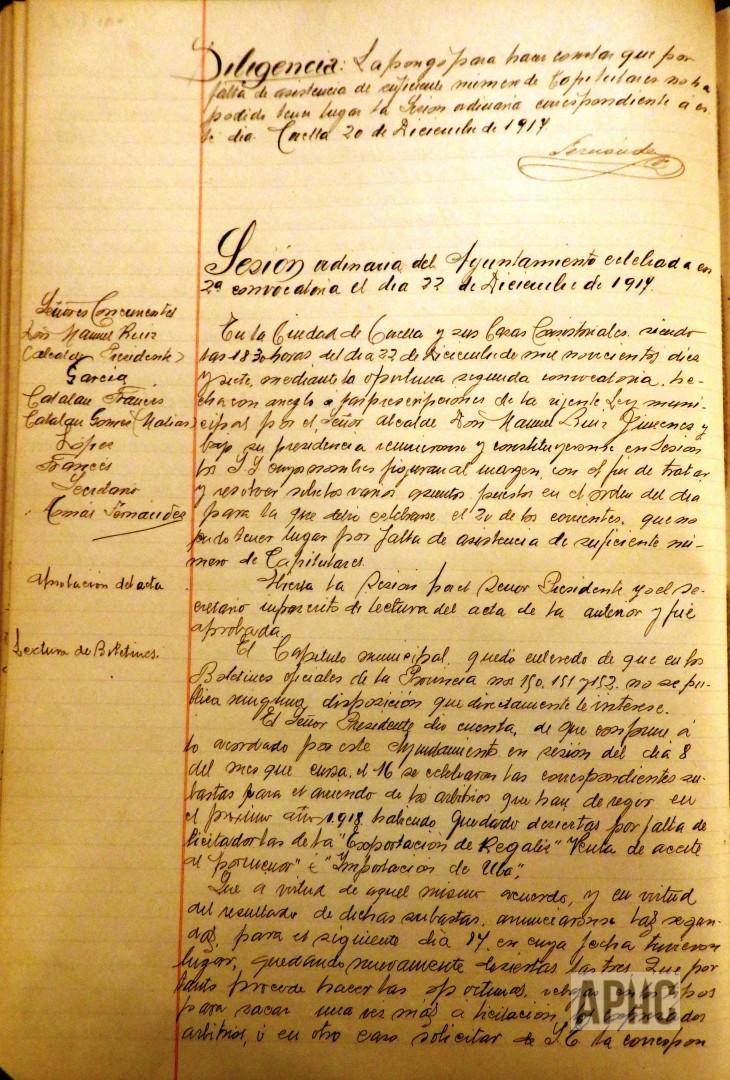 Diligencia: La pongo para hacer constar que por
falta de asistencia de suficiente número de Capitulares no ha
podido tener lugar la Sesión ordinaria correspondiente a es-
te dia. Caella 20 de Diciembre de 1917.
Fernández
Sesión ordinaria del Ayuntamiento celebrada en
2ª convocatoria el dia 22 de Diciembre de 1917.
Señores Concurrentes
Don Manuel Ruiz
(Alcalde Presidente)
Garcia
Catalan Francés
Catalan Gomez (Matias)
López
Francés
Secretario
Tomás Fernández
En la Ciudad de Caella y sus Casas Consistoriales. siendo
las 18'30 horas del dia 22 de Diciembre de mil novecientos diez
y siete, mediante la oportuna segunda convocatoria, he-
cha con arreglo a las prescripciones de la vigente Ley muni-
cipal por el Señor alcalde Don Manuel Ruiz Jimenez y
bajo su presidencia reunieronse y constituyeronse en Sesión
los SS cuyos nombres figuran al margen, con el fin de tratar
y resolver sobre los varios asuntos puestos en el orden del dia
para la que debio celebrarse el 20 de los corrientes, que no
pudo tener lugar por falta de asistencia de suficiente nú-
mero de Capitulares.
Aprobacion del acta
Abierta la Sesion por el Señor Presidente yo el Se-
cretario infrascrito di lectura del acta de la anterior y fué
aprobada
Lectura de Boletines.
El Capitulo municipal, quedó enterado de que en los
Boletines oficiales de la Provincia nos 150. 151 y 152. no se pu-
blica ninguna disposición que directamente le interese.
El Señor Presidente dio cuenta, de que conforme á
lo acordado por este Ayuntamiento en sesión del dia 8
del mes que cursa, el 16 se celebraron las correspondientes su-
bastas para el arriendo de los arbitrios que han de regir en
el próximo año 1.918 habiendo quedado desiertas por falta de
licitador las de la "Exportación de Regaliz" "Venta de aceite
al pormenor" é "Importación de Uva".
Que a virtud de aquel mismo acuerdo, y en virtud
del resultado de dichas subastas, anunciaronse las segun-
das, para el siguiente dia 17 en cuya fecha tuvieron
lugar, quedando nuevamente desiertas las tres. Que por
tanto procede hacer las oportunas rebajas en los tipos
para sacar una vez más a licitación, los expresados
arbitrios, ó en otro caso solicitar de S.E. la correspon
APHC